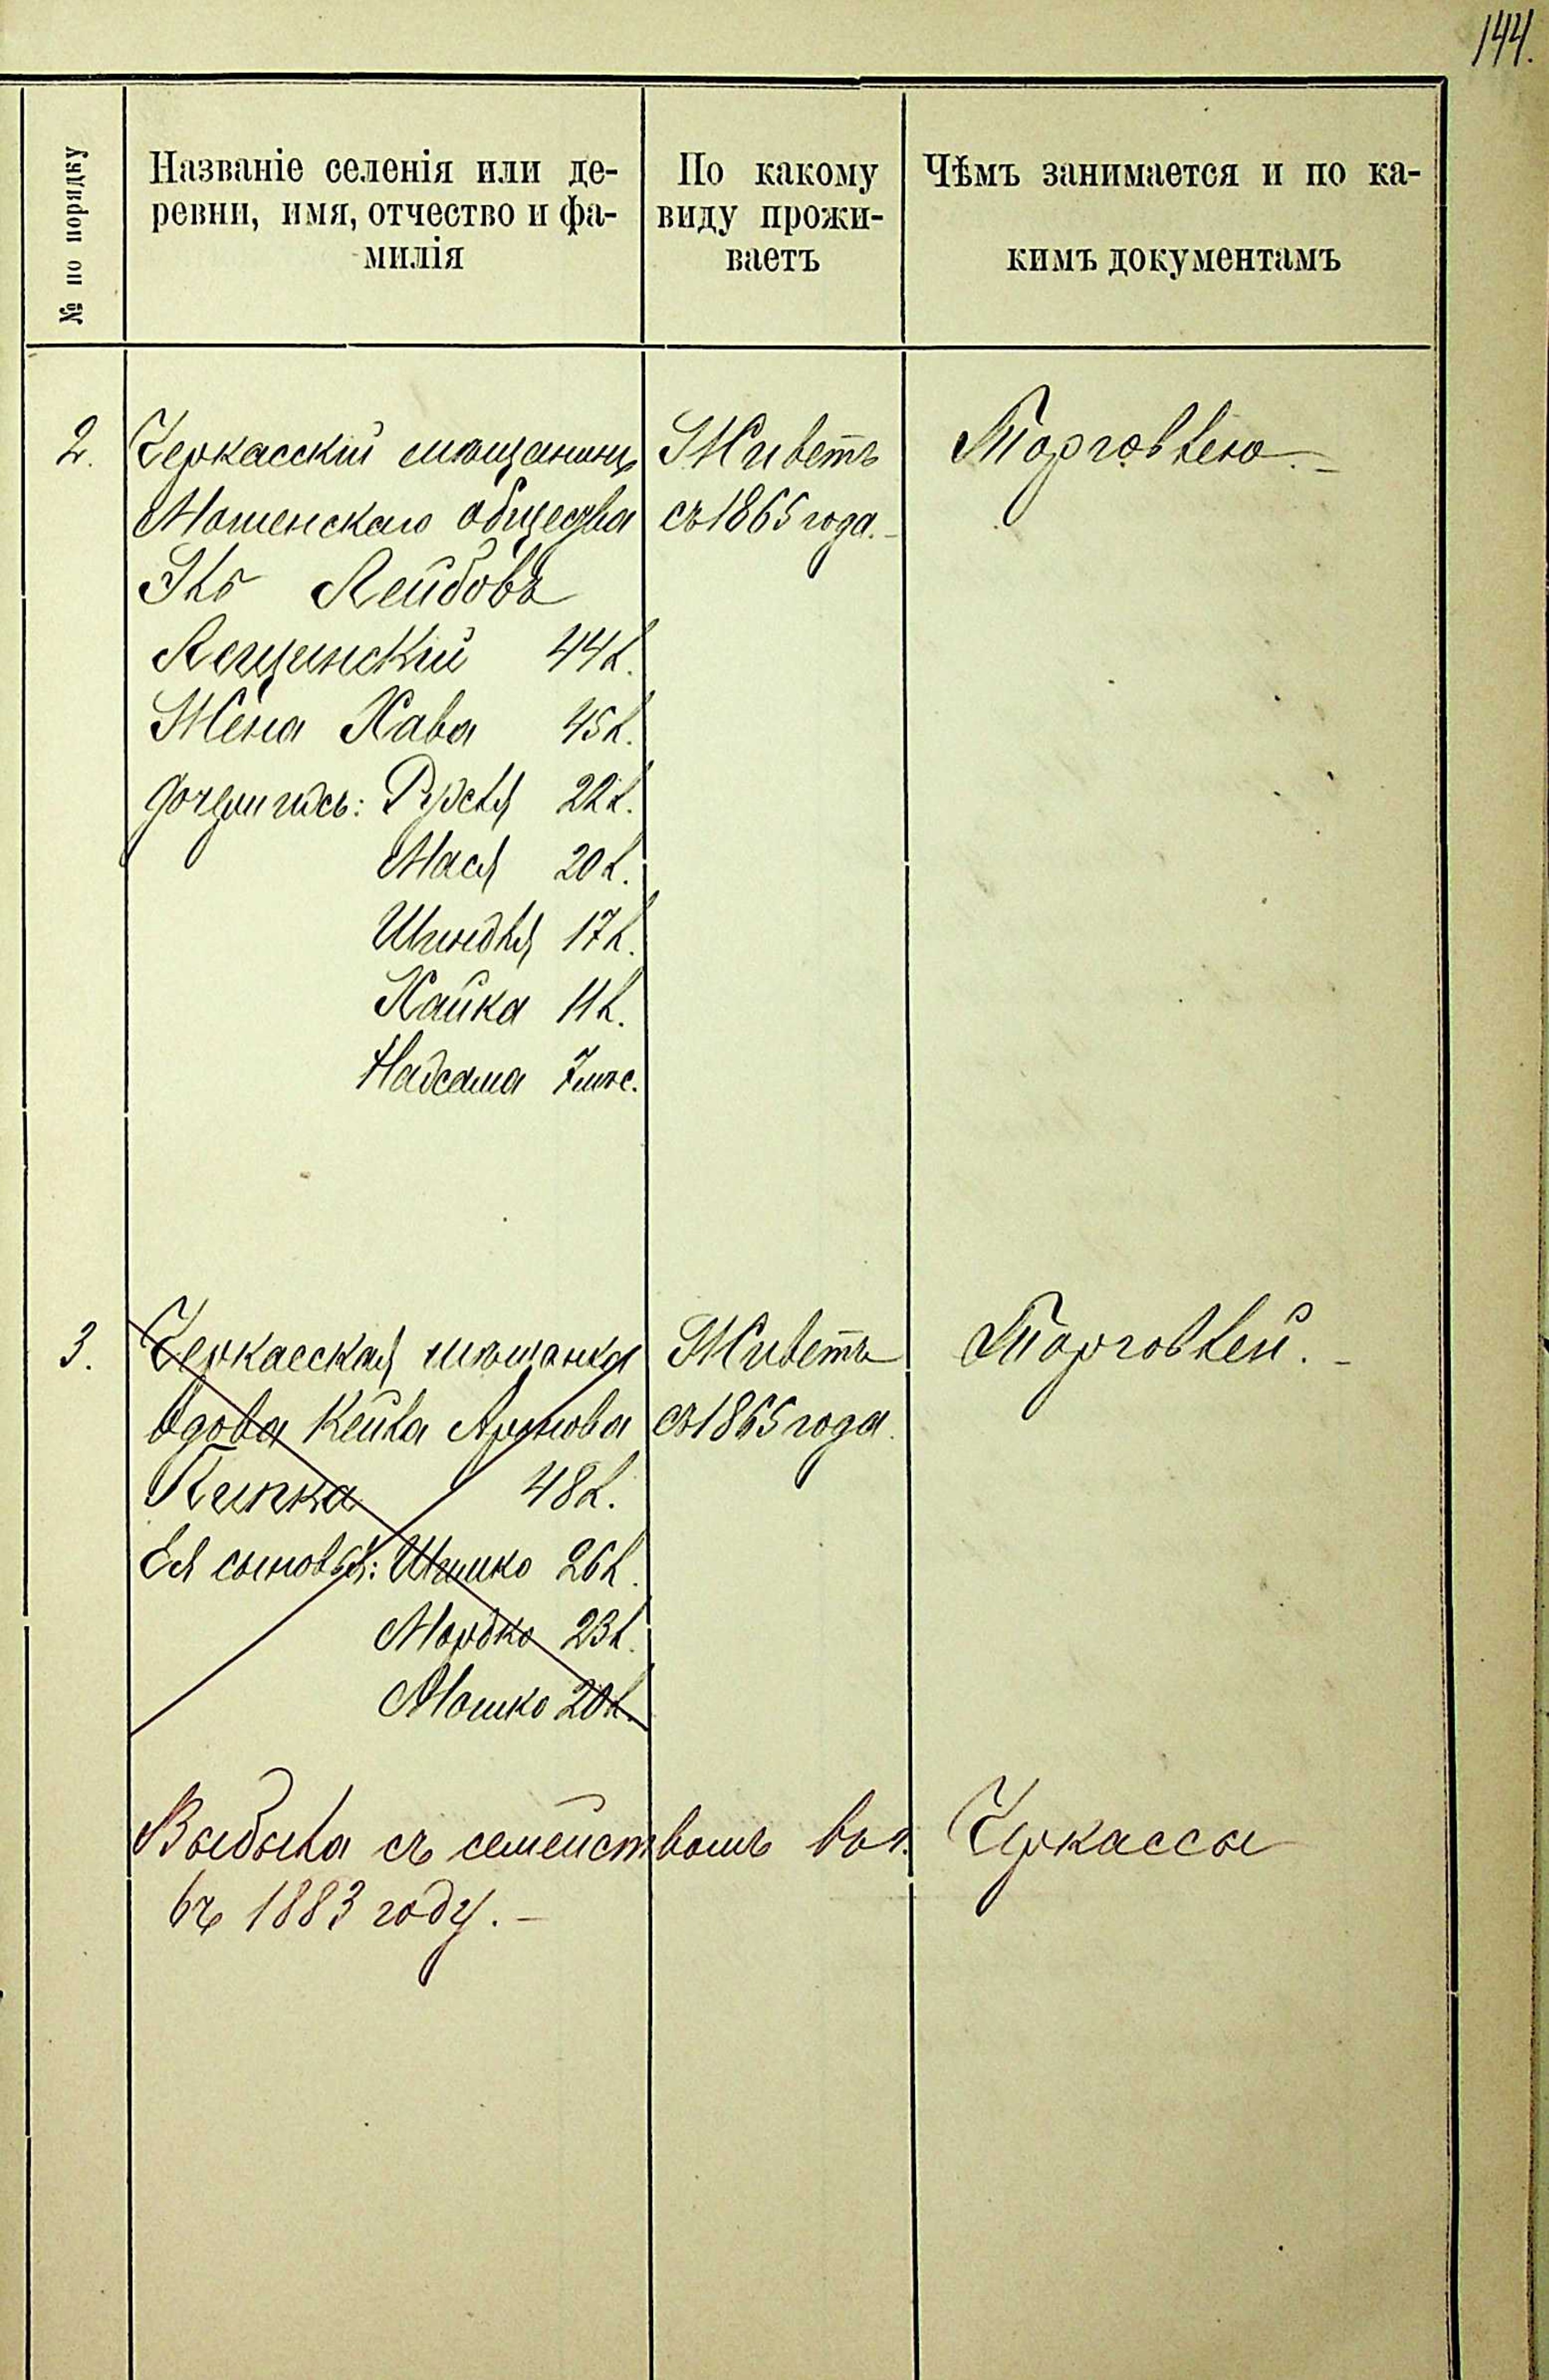 144.
№ по порядку
Названіе селенія или де-
ревни, имя, отчество и фа-
милія
По какому
виду прожи-
ваетъ
Чѣмъ занимается и по ка-
кимъ документамъ
2.
Черкасскій мѣщанинъ
Мошенскаго общества
Лейбовъ
Лещинскій 44 л.
Жена Хава 45 л.
дочери ихъ: Рузя 22 л.
Мася 20 л.
Шиндля 17 л.
Хайка 11 л.
7 мѣс.
Живетъ
съ 1865 года.
Торговлею.
3.
Черкасская мѣщанка
вдова Кейла Аронова
Липка 48 л.
Ея сыновья: Шимко 26 л.
Мордко 23 л.
Мошко 20 л.
Живетъ
съ 1865 года.
Торговлей.
Выбыла съ семействомъ въ г. Черкассы
въ 1883 году.